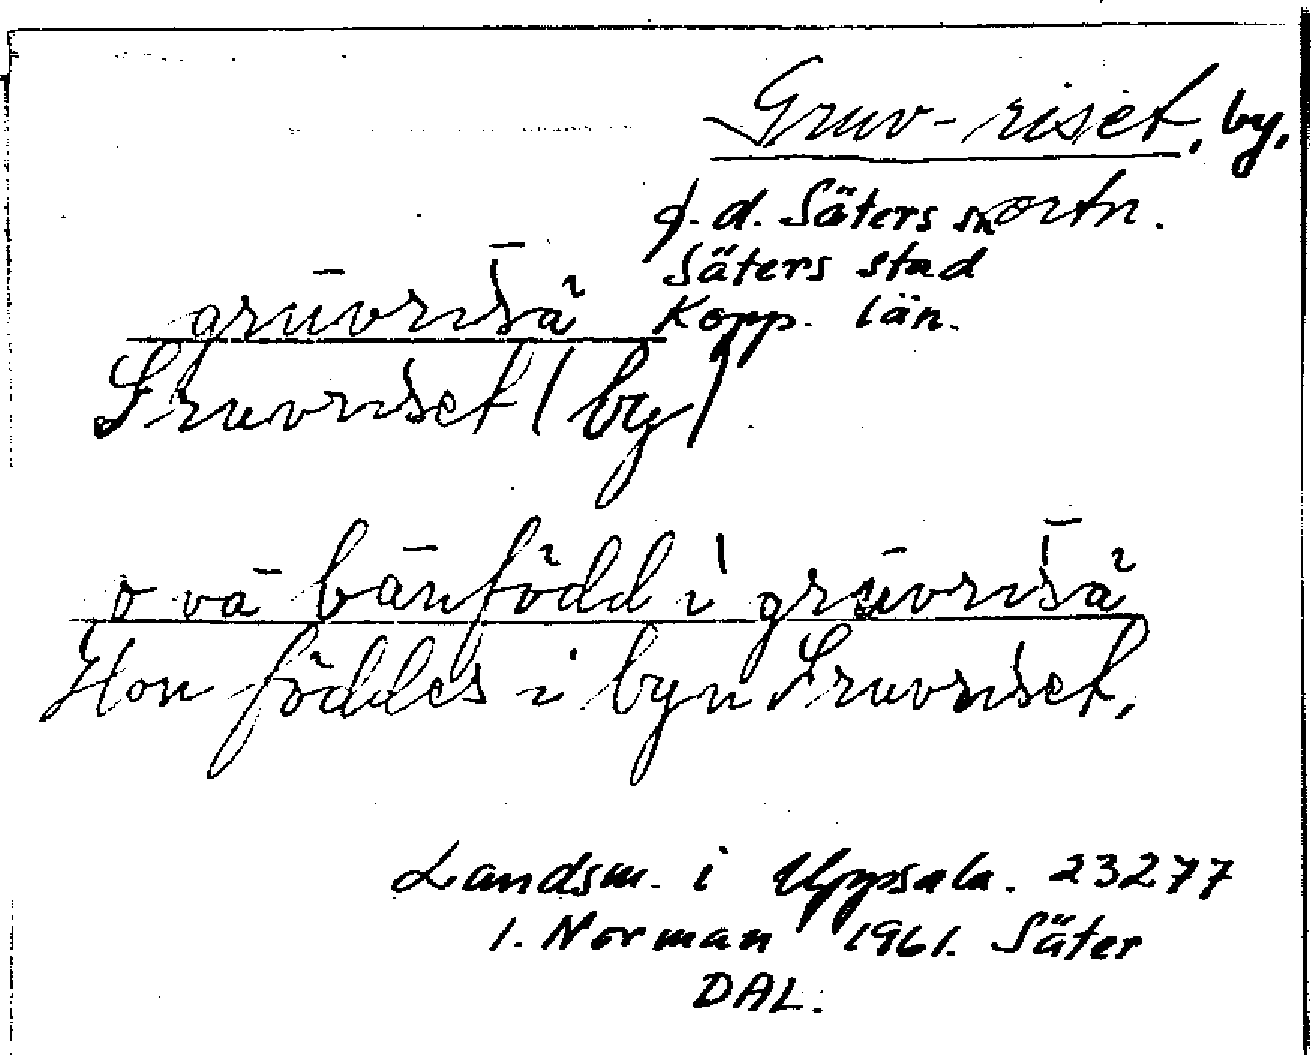 Gruv-riset, by,
f. d. Säters sn ortn.
Säters stad
Kopp. län.
grūvrīsä
Gruvriset (by)
o vā bānfödd i grūvrīsä
Hon föddes i byn Gruvriset,
Landsm. i Uppsala. 23277
I. Norman 1961. Säter
DAL.